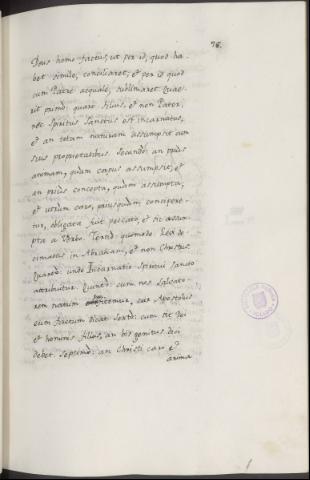 78.
Deus homo factus, ut per id, quod ha-
bet simile, conciliaret, et per id quod
cum Patre aequale, sublimaret. Quae-
rit primo: quare Filius, et non Pater,
nec Spiritus Sanctus est incarnatus,
et an totam naturam assumpsit cum
suis proprietatibus. Secundo: an prius
animam, quam corpus assumpsit, et
an prius concepta, quam assumpta,
et utrum caro, priusquam concipere-
tur, obligata fuit peccato, et sic assum-
pta a Verbo. Tertio: quomodo Levi de-
cimatus in Abraham, et non Christus.
Quarto: unde Incarnatio Spiritui Sancto
attribuitur. Quinto: cum nos Salvato-
rem natum, cur Apostolus
eum factum dicat. Sexto: cum sit Dei
et hominis Filius, an bis genitus dici
debet. Septimo: an Christi caro et
anima